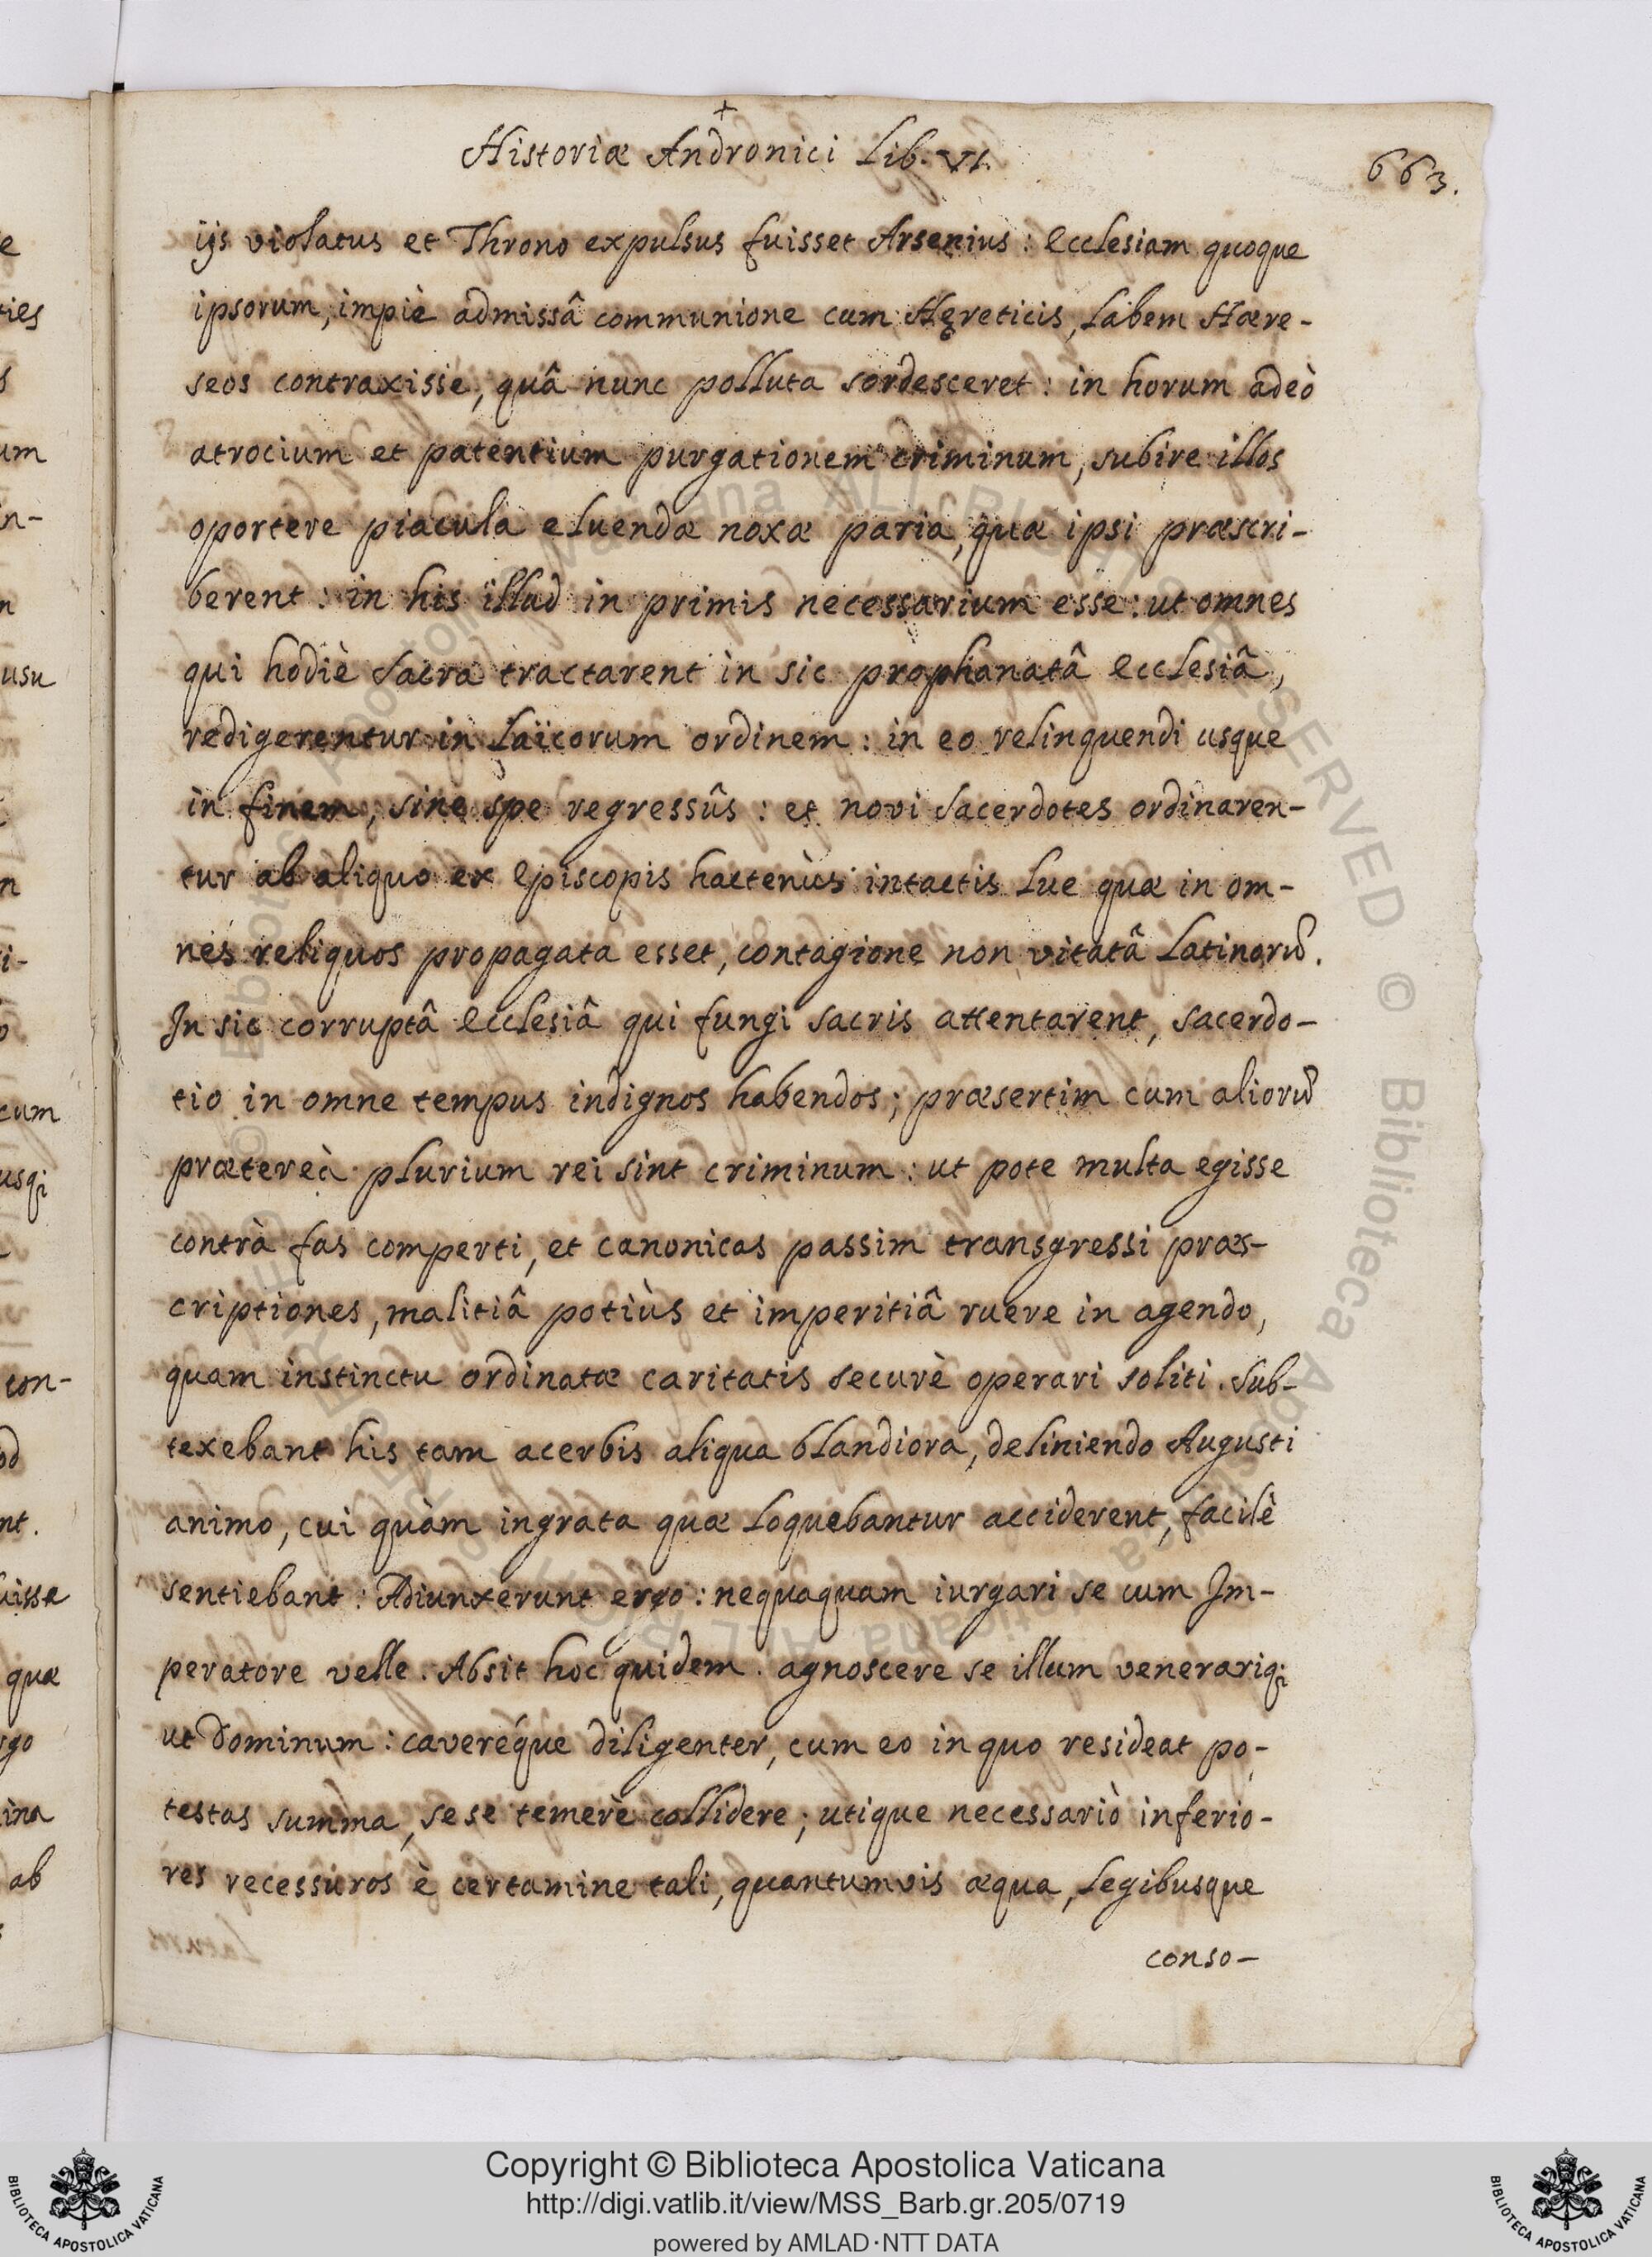 +
Historiæ Andronici Lib. VI.
663.
ijs violatus et Throno expulsus fuisset Arsenius: Ecclesiam quoque
ipsorum, impiè admissâ communione cum Hęreticis, labem Hære-
seos contraxisse, quâ nunc polluta sordesceret: in horum adeò
atrocium et patentium purgationem criminum, subire illos
oportere piacula eluendæ noxæ paria, quæ ipsi præscri-
berent: in his illud in primis necessarium esse: ut omnes
qui hodiè sacra tractarent in sic prophanatâ Ecclesiâ,
redigerentur in Laïcorum ordinem: in eo relinquendi usque
in finem, sine spe regressûs: et novi Sacerdotes ordinaren-
tur ab aliquo ex Episcopis hactenùs intactis lue quæ in om-
nes reliquos propagata esset, contagione non vitatâ Latinorũ.
In sic corruptâ Ecclesiâ qui fungi sacris attentarent, sacerdo-
tio in omne tempus indignos habendos; præsertim cum aliorũ
prætereà plurium rei sint criminum: ut pote multa egisse
contrà fas comperti, et canonicas passim transgressi præs-
criptiones, malitiâ potiùs et imperitiâ ruere in agendo,
quam instinctu ordinatæ caritatis securè operari soliti. Sub-
texebant his tam acerbis aliqua blandiora, deliniendo Augusti
animo, cui quàm ingrata quæ loquebantur acciderent, facilè
sentiebant: Adiunxerunt ergo: nequaquam iurgari se cum Im-
peratore velle. Absit hoc quidem. agnoscere se illum venerariq;
ut Dominum: caveréque diligenter, cum eo in quo resideat po-
testas summa, sese temerè collidere; utique necessariò inferio-
res recessuros è certamine tali, quantumvis æqua, legibusque
conso-
e
ties
s
um
in-
n
usu
n
i-
cum
usq;
con-
od
nt.
uisse
quæ
rgo
ina
ab
Copyright © Biblioteca Apostolica Vaticana
http://digi.vatlib.it/view/MSS_Barb.gr.205/0719
powered by AMLAD·NTT DATA
BIBLIOTECA APOSTOLICA VATICANA
BIBLIOTECA APOSTOLICA VATICANA